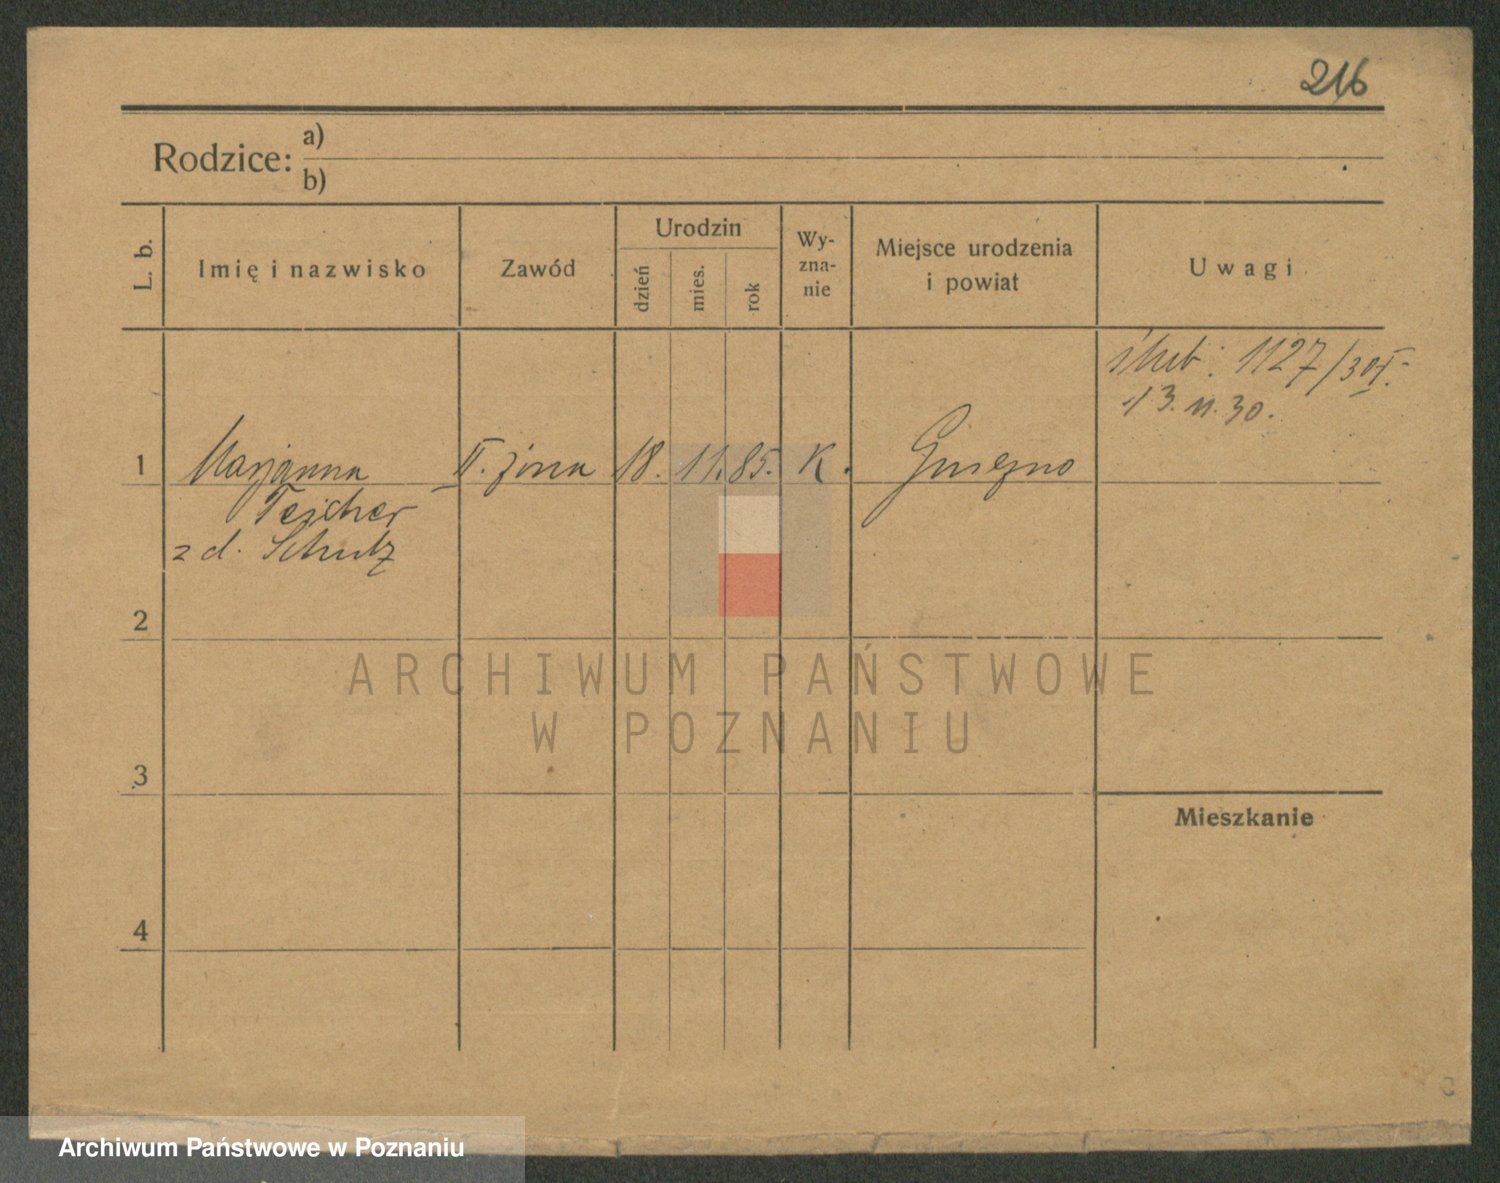 216
Rodzice: a)
b)
L. b.
Imię i nazwisko
Zawód
Urodzin
dzień
mies.
rok
Wy-
zna-
nie
Miejsce urodzenia
i powiat
Uwagi
ślub: 1127/30 I.
13. 11. 30.
1 Marjanna II. żona 18. 11. 85. K. Gniezno
Teicher
z d. Schulz
2
ARCHIWUM PAŃSTWOWE
W POZNANIU
3
Mieszkanie
4
Archiwum Państwowe w Poznaniu